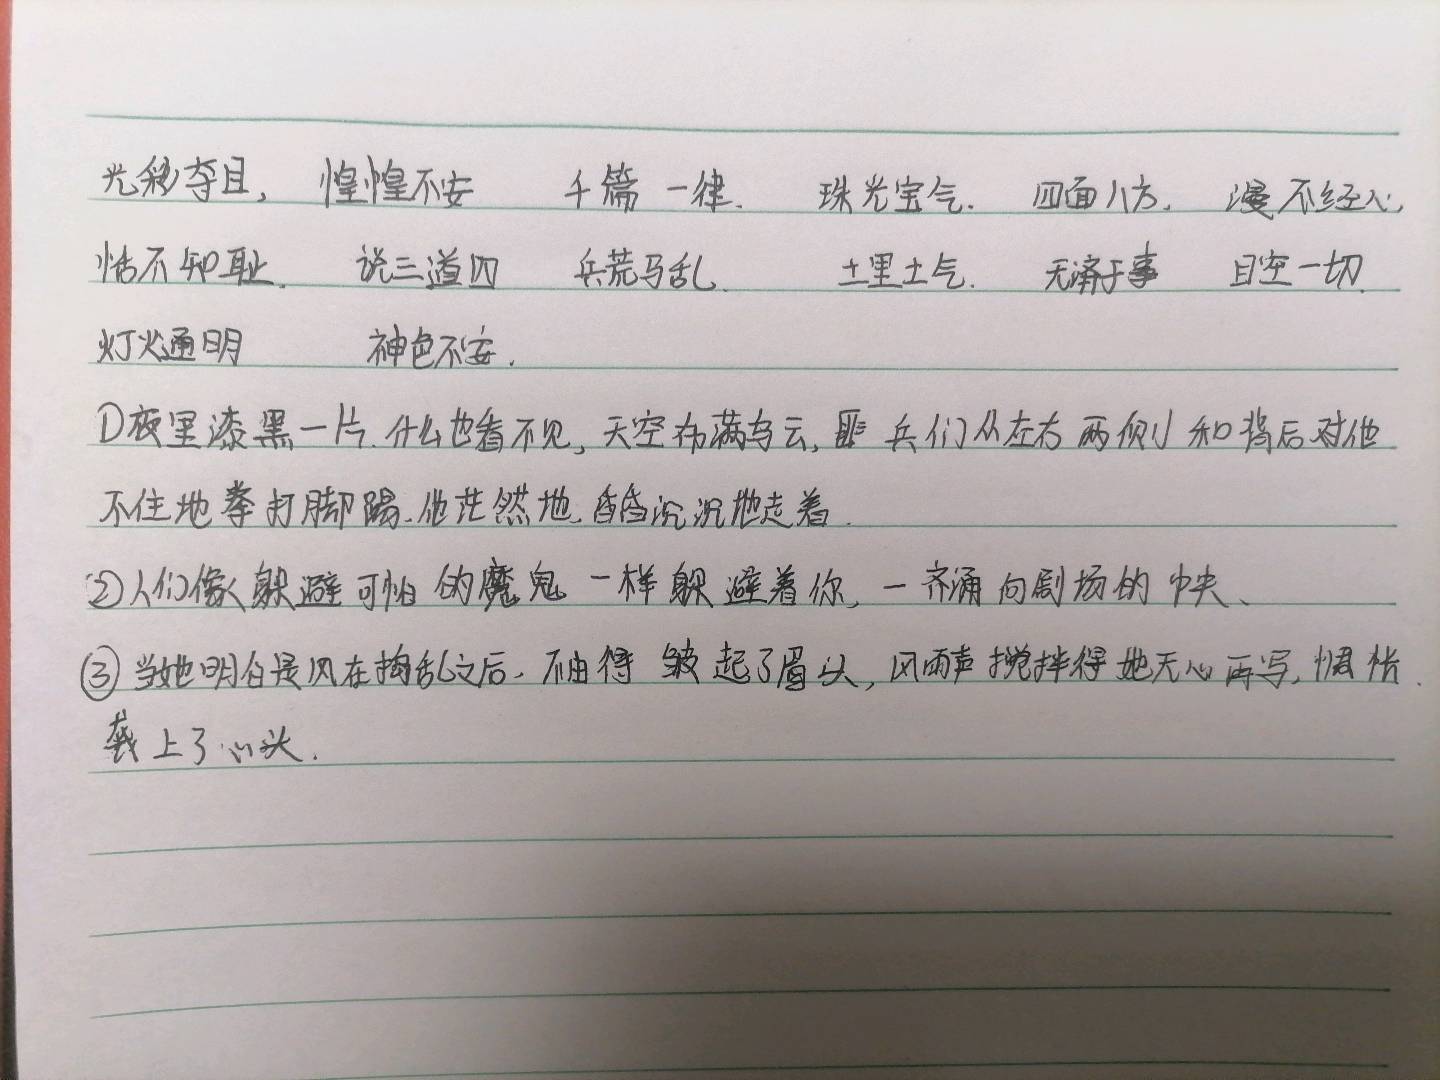 光彩夺目, 惶惶不安 千篇一律. 珠光宝气. 四面八方. 漫不经心,
恬不知耻. 说三道四 兵荒马乱. 土里土气. 无济于事 目空一切.
灯火通明 神色不安.
①夜里漆黑一片.什么也看不见,天空布满乌云,匪兵们从左右两侧和背后对他
不住地拳打脚踢.他茫然地.昏昏沉沉地走着.
②人们像躲避可怕的魔鬼一样躲避着你,一齐涌向剧场的中央、
③当她明白是风在捣乱之后.不由得皱起了眉头,风雨声搅拌得她无心再写,惆怅.
袭上了心头.